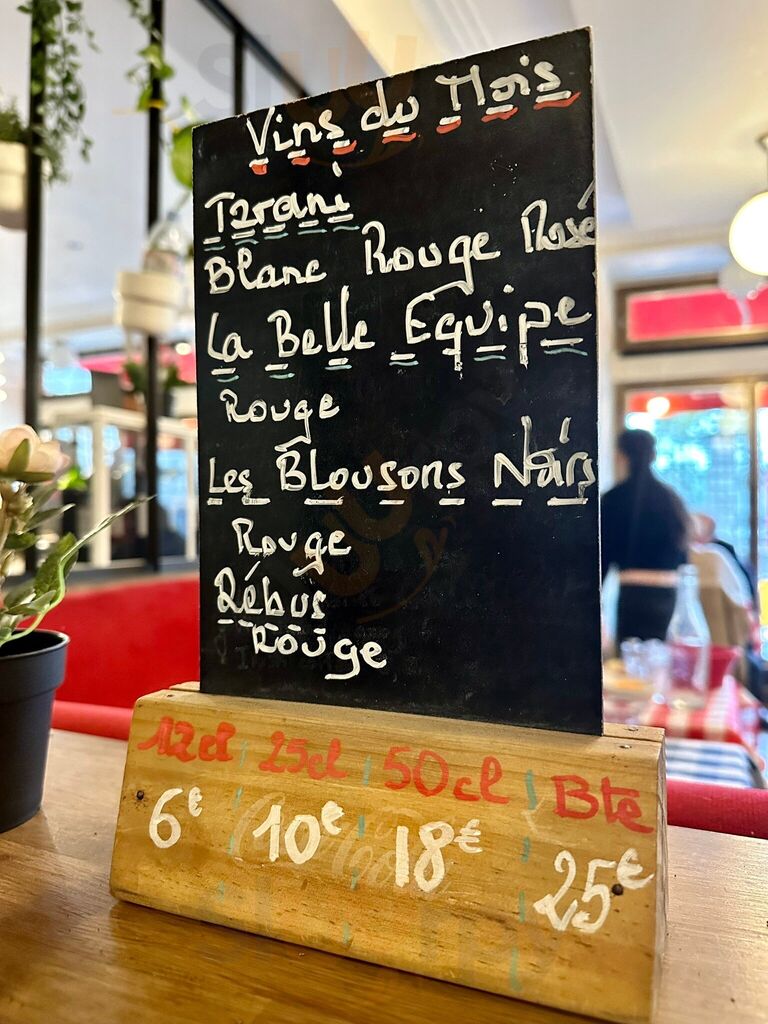 Vins du Mois
Tzrani
Blanc Rouge Rosé
La Belle Equipe
Rouge
Les Blousons Noirs
Rouge
Rébus
Rouge
12cl 25cl 50cl Bte
6€ 10€ 18€ 25€